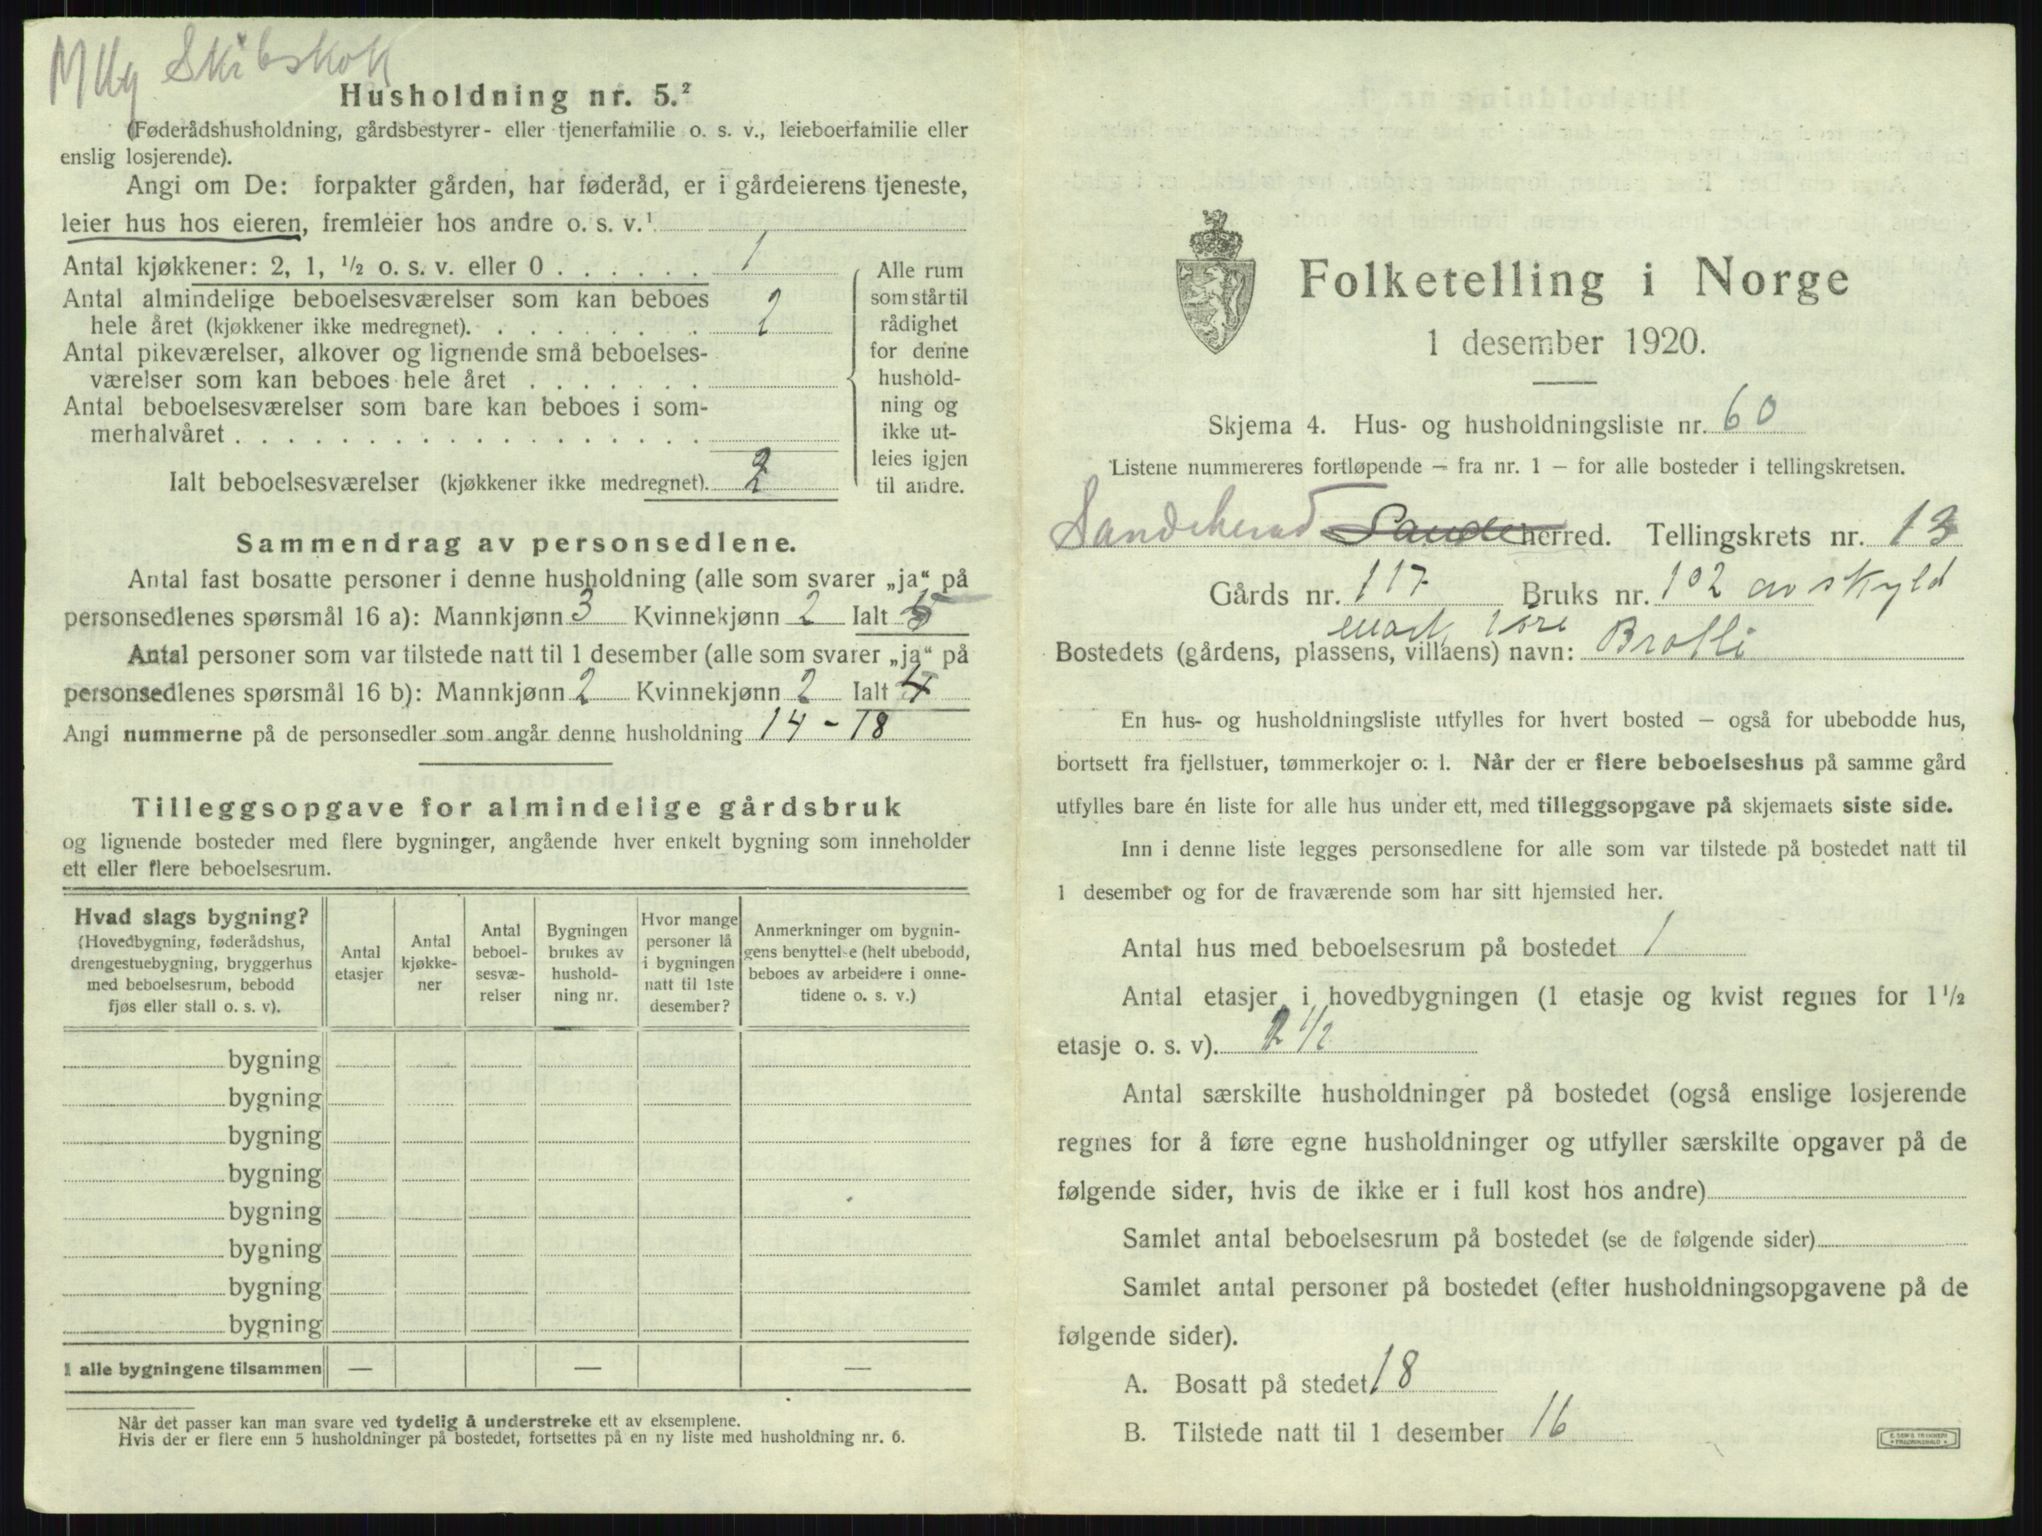 MKg Skibskok
Husholdning nr. 5.²
(Føderådshusholdning, gårdsbestyrer- eller tjenerfamilie o. s. v., leieboerfamilie eller
enslig losjerende).
Angi om De: forpakter gården, har føderåd, er i gårdeierens tjeneste,
leier hus hos eieren, fremleier hos andre o. s. v.¹
Antal kjøkkener: 2, 1, ½ o. s. v. eller 0 . . . . . . 1
Antal almindelige beboelsesværelser som kan beboes
hele året (kjøkkener ikke medregnet). . . . . . . . . 2
Antal pikeværelser, alkover og lignende små beboelses-
værelser som kan beboes hele året . . . . . . .
Antal beboelsesværelser som bare kan beboes i som-
merhalvåret . . . . . . . . . . . . . . . . . .
Ialt beboelsesværelser (kjøkkener ikke medregnet). 2
Alle rum
som står til
rådighet
for denne
hushold-
ning og
ikke ut-
leies igjen
til andre.
Sammendrag av personsedlene.
Antal fast bosatte personer i denne husholdning (alle som svarer „ja“ på
personsedlenes spørsmål 16 a): Mannkjønn 3 Kvinnekjønn 2 Ialt 5
Antal personer som var tilstede natt til 1 desember (alle som svarer „ja“ på
personsedlenes spørsmål 16 b): Mannkjønn 2 Kvinnekjønn 2 Ialt 4
Angi nummerne på de personsedler som angår denne husholdning 14 - 18
Tilleggsopgave for almindelige gårdsbruk
og lignende bosteder med flere bygninger, angående hver enkelt bygning som inneholder
ett eller flere beboelsesrum.
Hvad slags bygning?
(Hovedbygning, føderådshus,
drengestuebygning, bryggerhus
med beboelsesrum, bebodd
fjøs eller stall o. s. v).
Antal
etasjer
Antal
kjøkke-
ner
Antal
beboel-
sesvæ-
relser
Bygningen
brukes av
hushold-
ning nr.
Hvor mange
personer lå
i bygningen
natt til 1ste
desember?
Anmerkninger om bygnin-
gens benyttelse (helt ubebodd,
beboes av arbeidere i onne-
tidene o. s. v.)
bygning
bygning
bygning
bygning
bygning
bygning
bygning
bygning
I alle bygningene tilsammen — — —
Når det passer kan man svare ved tydelig å understreke ett av eksemplene.
Hvis der er flere enn 5 husholdninger på bostedet, fortsettes på en ny liste med husholdning nr. 6.
Folketelling i Norge
1 desember 1920.
Skjema 4. Hus- og husholdningsliste nr. 60
Listene nummereres fortløpende – fra nr. 1 – for alle bosteder i tellingskretsen.
Sandeherad Sande herred. Tellingskrets nr. 13
Gårds nr. 117 Bruks nr. 102 av skyld
mark øre
Bostedets (gårdens, plassens, villaens) navn: Bratli
En hus- og husholdningsliste utfylles for hvert bosted – også for ubebodde hus,
bortsett fra fjellstuer, tømmerkojer o. l. Når der er flere beboelseshus på samme gård
utfylles bare én liste for alle hus under ett, med tilleggsopgave på skjemaets siste side.
Inn i denne liste legges personsedlene for alle som var tilstede på bostedet natt til
1 desember og for de fraværende som har sitt hjemsted her.
Antal hus med beboelsesrum på bostedet 1
Antal etasjer i hovedbygningen (1 etasje og kvist regnes for 1½
etasje o. s. v). 2 1/2
Antal særskilte husholdninger på bostedet (også enslige losjerende
regnes for å føre egne husholdninger og utfyller særskilte opgaver på de
følgende sider, hvis de ikke er i full kost hos andre)
Samlet antal beboelsesrum på bostedet (se de følgende sider)
Samlet antal personer på bostedet (efter husholdningsopgavene på de
følgende sider).
A. Bosatt på stedet 18
B. Tilstede natt til 1 desember 16